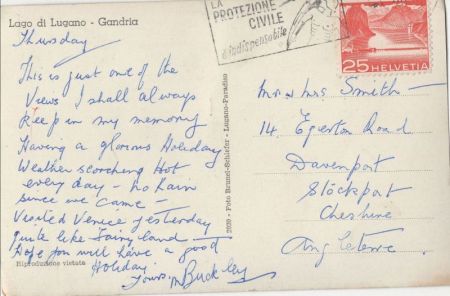 Lago di Lugano - Gandria
Thursday
This is just one of the
Views I shall always
keep in my memory
Having a glorious Holiday
Weather scorching Hot
every day - no rain
since we came -
Visited Venice yesterday
quite like Fairyland -
Hope you will have a good
Holiday
Yours M Buckley
Riproduzione vietata
2020 - Foto Brunel-Schiefer - Lugano-Paradiso
LA
PROTEZIONE
CIVILE
è indispensabile
25 HELVETIA
Mr & Mrs Smith -
14 Egerton Road
Davenport
Stockport
Cheshire
Angleterre